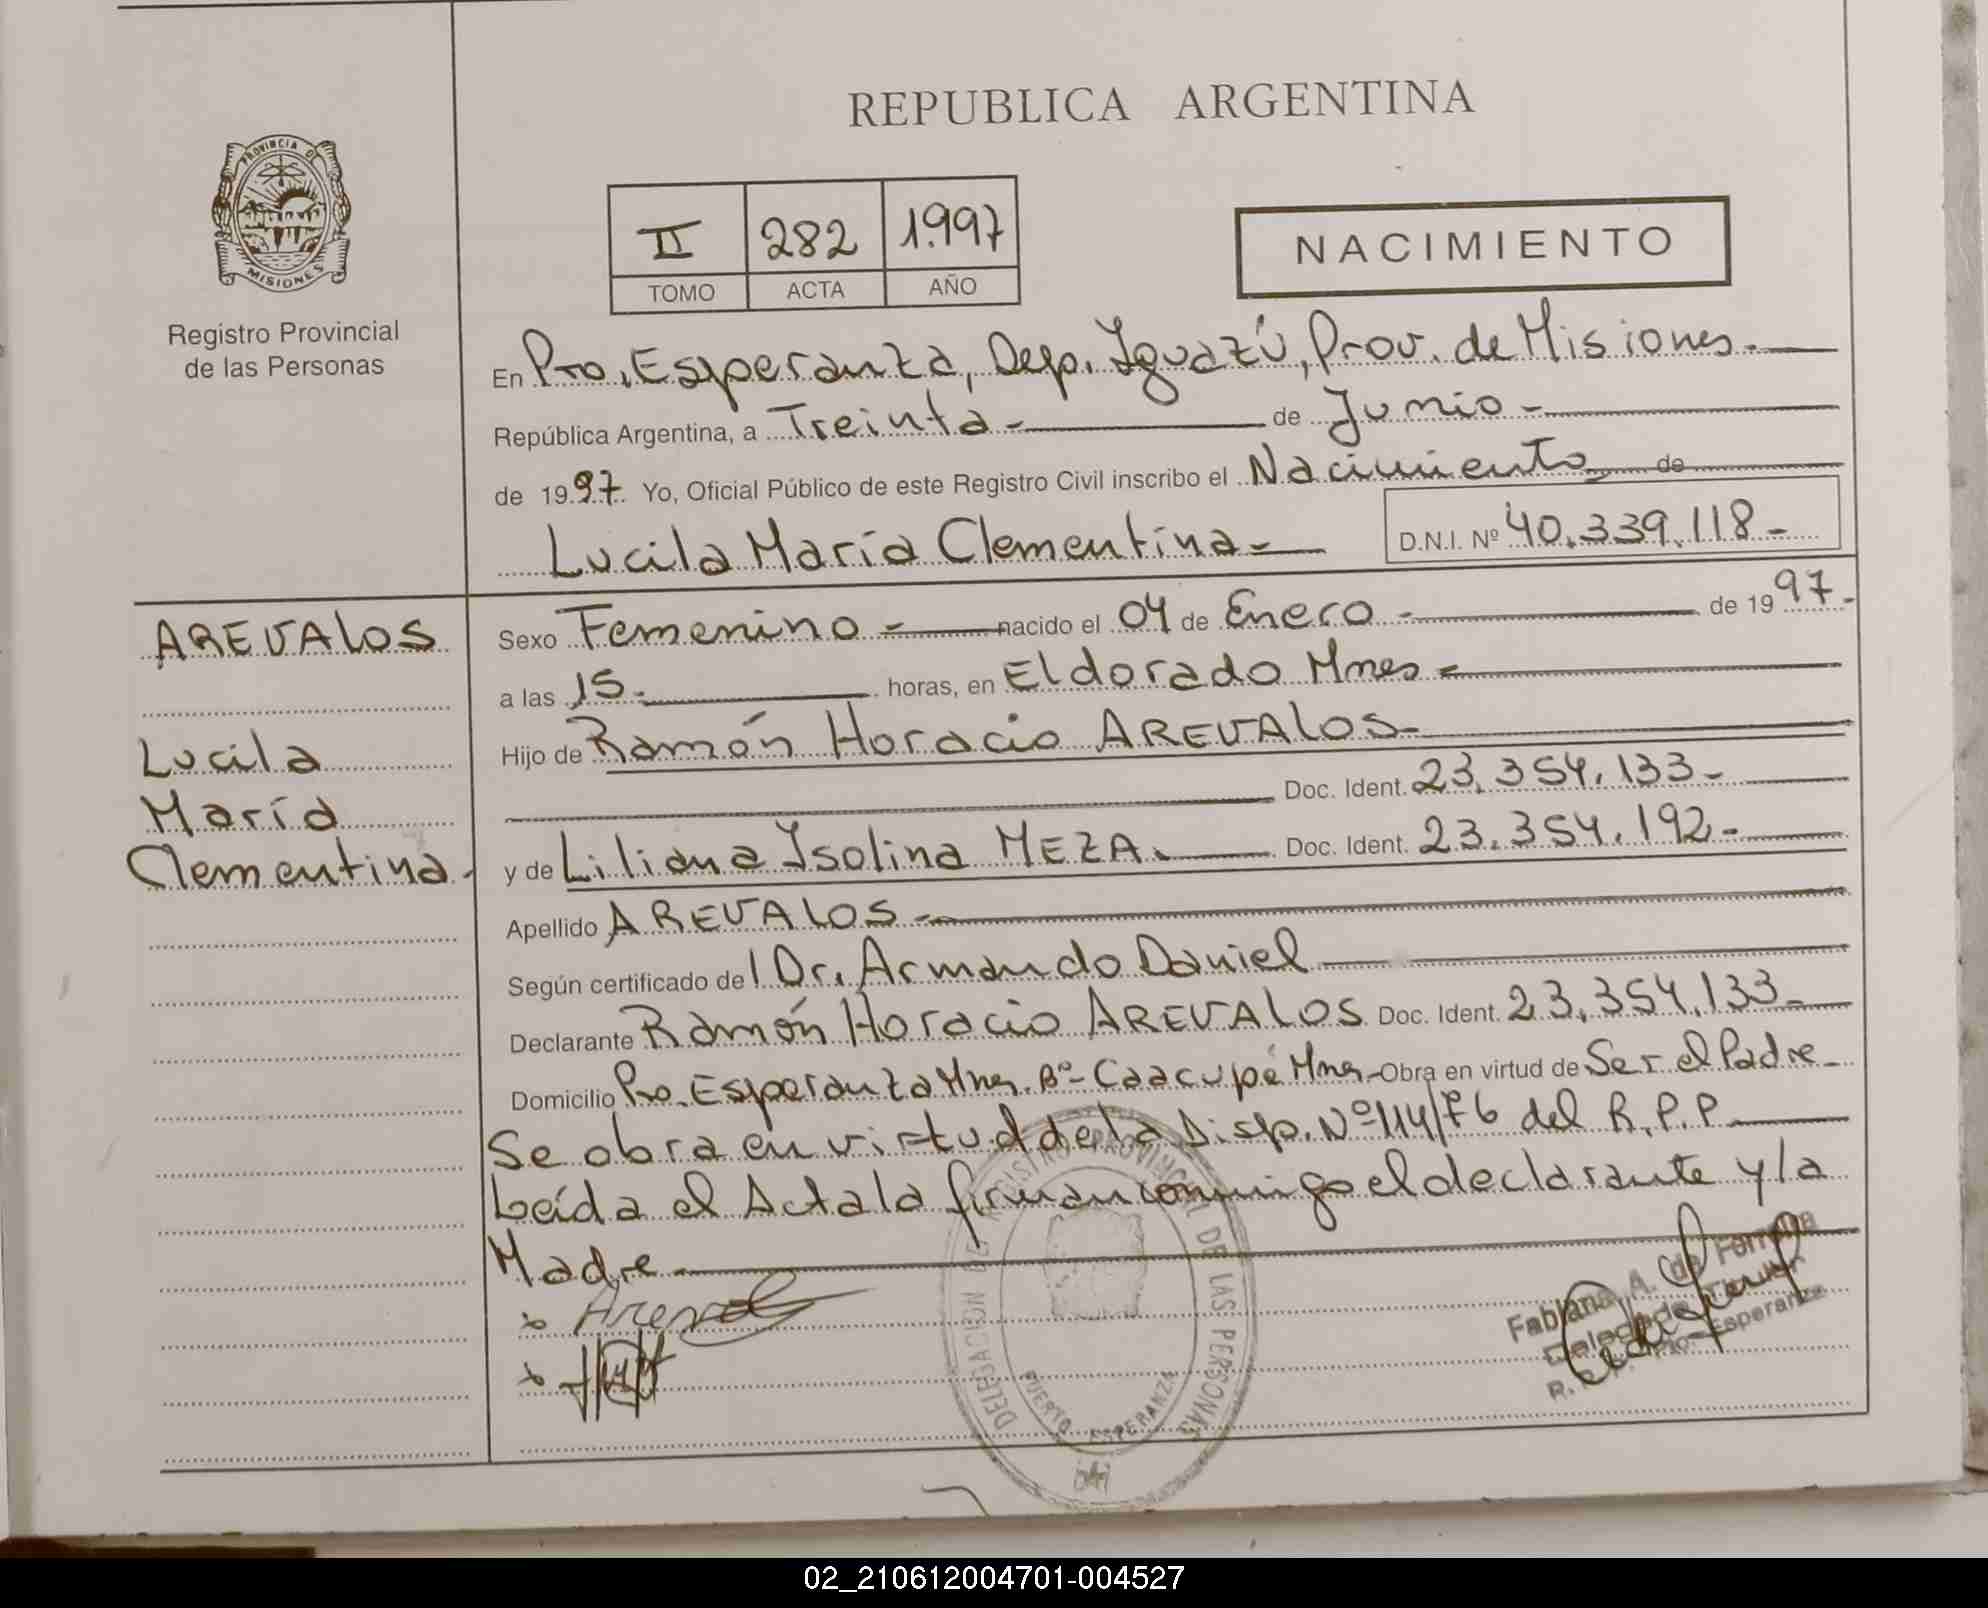 REPUBLICA ARGENTINA
PROVINCIA DE
MISIONES
Registro Provincial
de las Personas
II 282 1.997
TOMO ACTA AÑO
NACIMIENTO
En Pto. Esperanza, Dep. Iguazú, Prov. de Misiones.
República Argentina, a Treinta - de Junio -
de 1997. Yo, Oficial Público de este Registro Civil inscribo el Nacimiento de
Lucila María Clementina - D.N.I. Nº 40.339.118 -
AREVALOS
Lucila
María
Clementina.
Sexo Femenino - nacido el 04 de Enero - de 1997.
a las 15. horas, en Eldorado Mnes -
Hijo de Ramón Horacio AREVALOS -
Doc. Ident. 23.354.133 -
y de Liliana Isolina MEZA. Doc. Ident. 23.354.192 -
Apellido AREVALOS -
Según certificado del Dr. Armando Daniel
Declarante Ramón Horacio AREVALOS Doc. Ident. 23.354.133 -
Domicilio Pto. Esperanza Mnes. Bº - Caacupé Mnes - Obra en virtud de Ser el Padre -
Se obra en virtud de la Disp. Nº 114/76 del R.P.P.
Leída el Acta la firman conmigo el declarante y la
Madre
DELEGACION
REGISTRO PROVINCIAL DE LAS PERSONAS
PUERTO ESPERANZA
Fabiana A. de
Delegada Titular
Esperanza
02_210612004701-004527